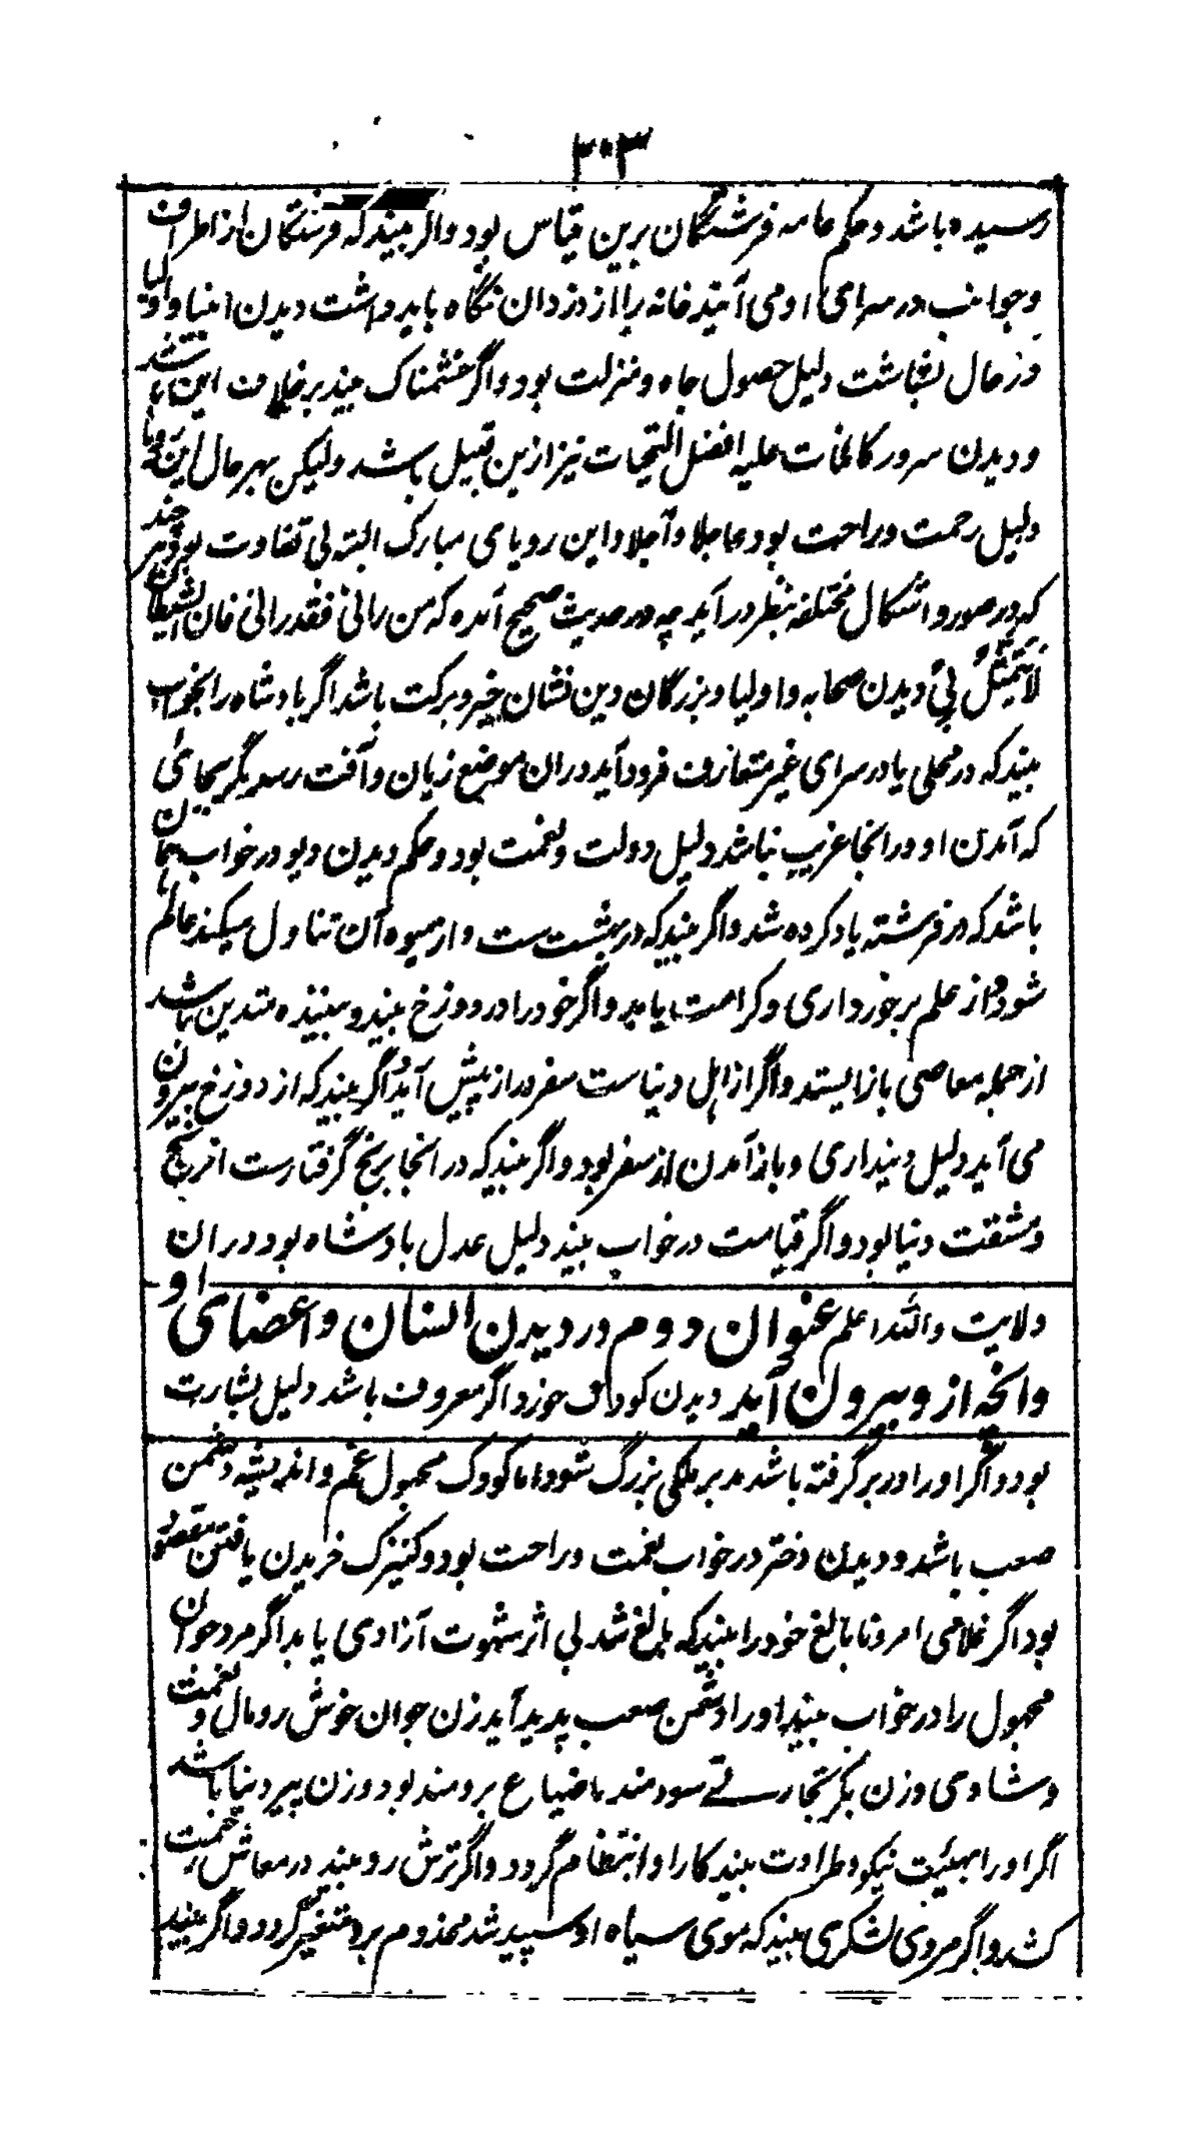 ۳۰۳
رسیده باشد و حکم عامه فرشتگان برین قیاس بود و اگر بیند که فرشتگان از اطراف
و جوانب در سرای او می آیند خانه را از دزدان نگاه باید داشت دیدن انبیا و اولیا
در حال بشاشت دلیل حصول جاه و منزلت بود و اگر خشمناک بیند بر خلاف این باشد
و دیدن سرور کائنات علیه افضل التحیات نیز ازین قبیل باشد ولیکن بهر حال این رویا
دلیل رحمت و راحت بود عاجلا و آجلا و این رویای مبارک البته بی تفاوت بود هر چند
که در صور و اشکال مختلفه بنظر در آید چه در حدیث صحیح آمده که من رانی فقد رانی فان الشیطان
لا یتمثل بی و دیدن صحابه و اولیا و بزرگان دین نشان خیر و برکت باشد اگر پادشاه را بخواب
بیند که در محلی یا در سرای غیر متعارف فرود آید دران موضع زیان و آفت رسد و گر بجائی
که آمدن او در انجا غریب نباشد دلیل دولت و نعمت بود و حکم دیدن دیو در خواب همان
باشد که در فرشته یاد کرده شد و اگر بیند که در بهشت ست و از میوه آن تناول میکند عالم
شود و از علم برخورداری و کرامت یابد و اگر خود را در دوزخ بیند و بیننده متدین باشد
از جمله معاصی باز ایستد و اگر از اهل دنیاست سفر دراز پیش آید و اگر بیند که از دوزخ بیرون
می آید دلیل دینداری و باز آمدن از سفر بود و اگر بیند که در انجا برنج گرفتارست از رنج
و مشقت دنیا بود و اگر قیامت در خواب بیند دلیل عدل بادشاه بود دران
ولایت والله اعلم عنوان دوم در دیدن انسان و اعضای او
و انچه از و بیرون آید دیدن کودک خورد اگر معروف باشد دلیل بشارت
بود و اگر او را در بر گرفته باشد مدبر ملکی بزرگ شود اما کودک مجهول غم و اندیشه و دشمن
صعب باشد و دیدن دختر در خواب نعمت و راحت بود و کنیزک خریدن یافتن مقصود
بود اگر غلامی امرد نابالغ خود را بیند که بالغ شد بی اثر شهوت آزادی یابد اگر مرد جوان
مجهول را در خواب بیند او را دشمن صعب پدید آید زن جوان خوش رو مال و نعمت
و شادی و زن بکر تجارتے سودمند یا ضیاع برومند بود و زن پیر دنیا باشد
اگر او را بهیئت نیکو و طراوت بیند کار او انتظام گردد و اگر ترش رو بیند در معاش زحمت
کشد و اگر مردی لشکری بیند که موی سیاه او سپید شد مخدوم برو متغیر گردد و اگر بیند